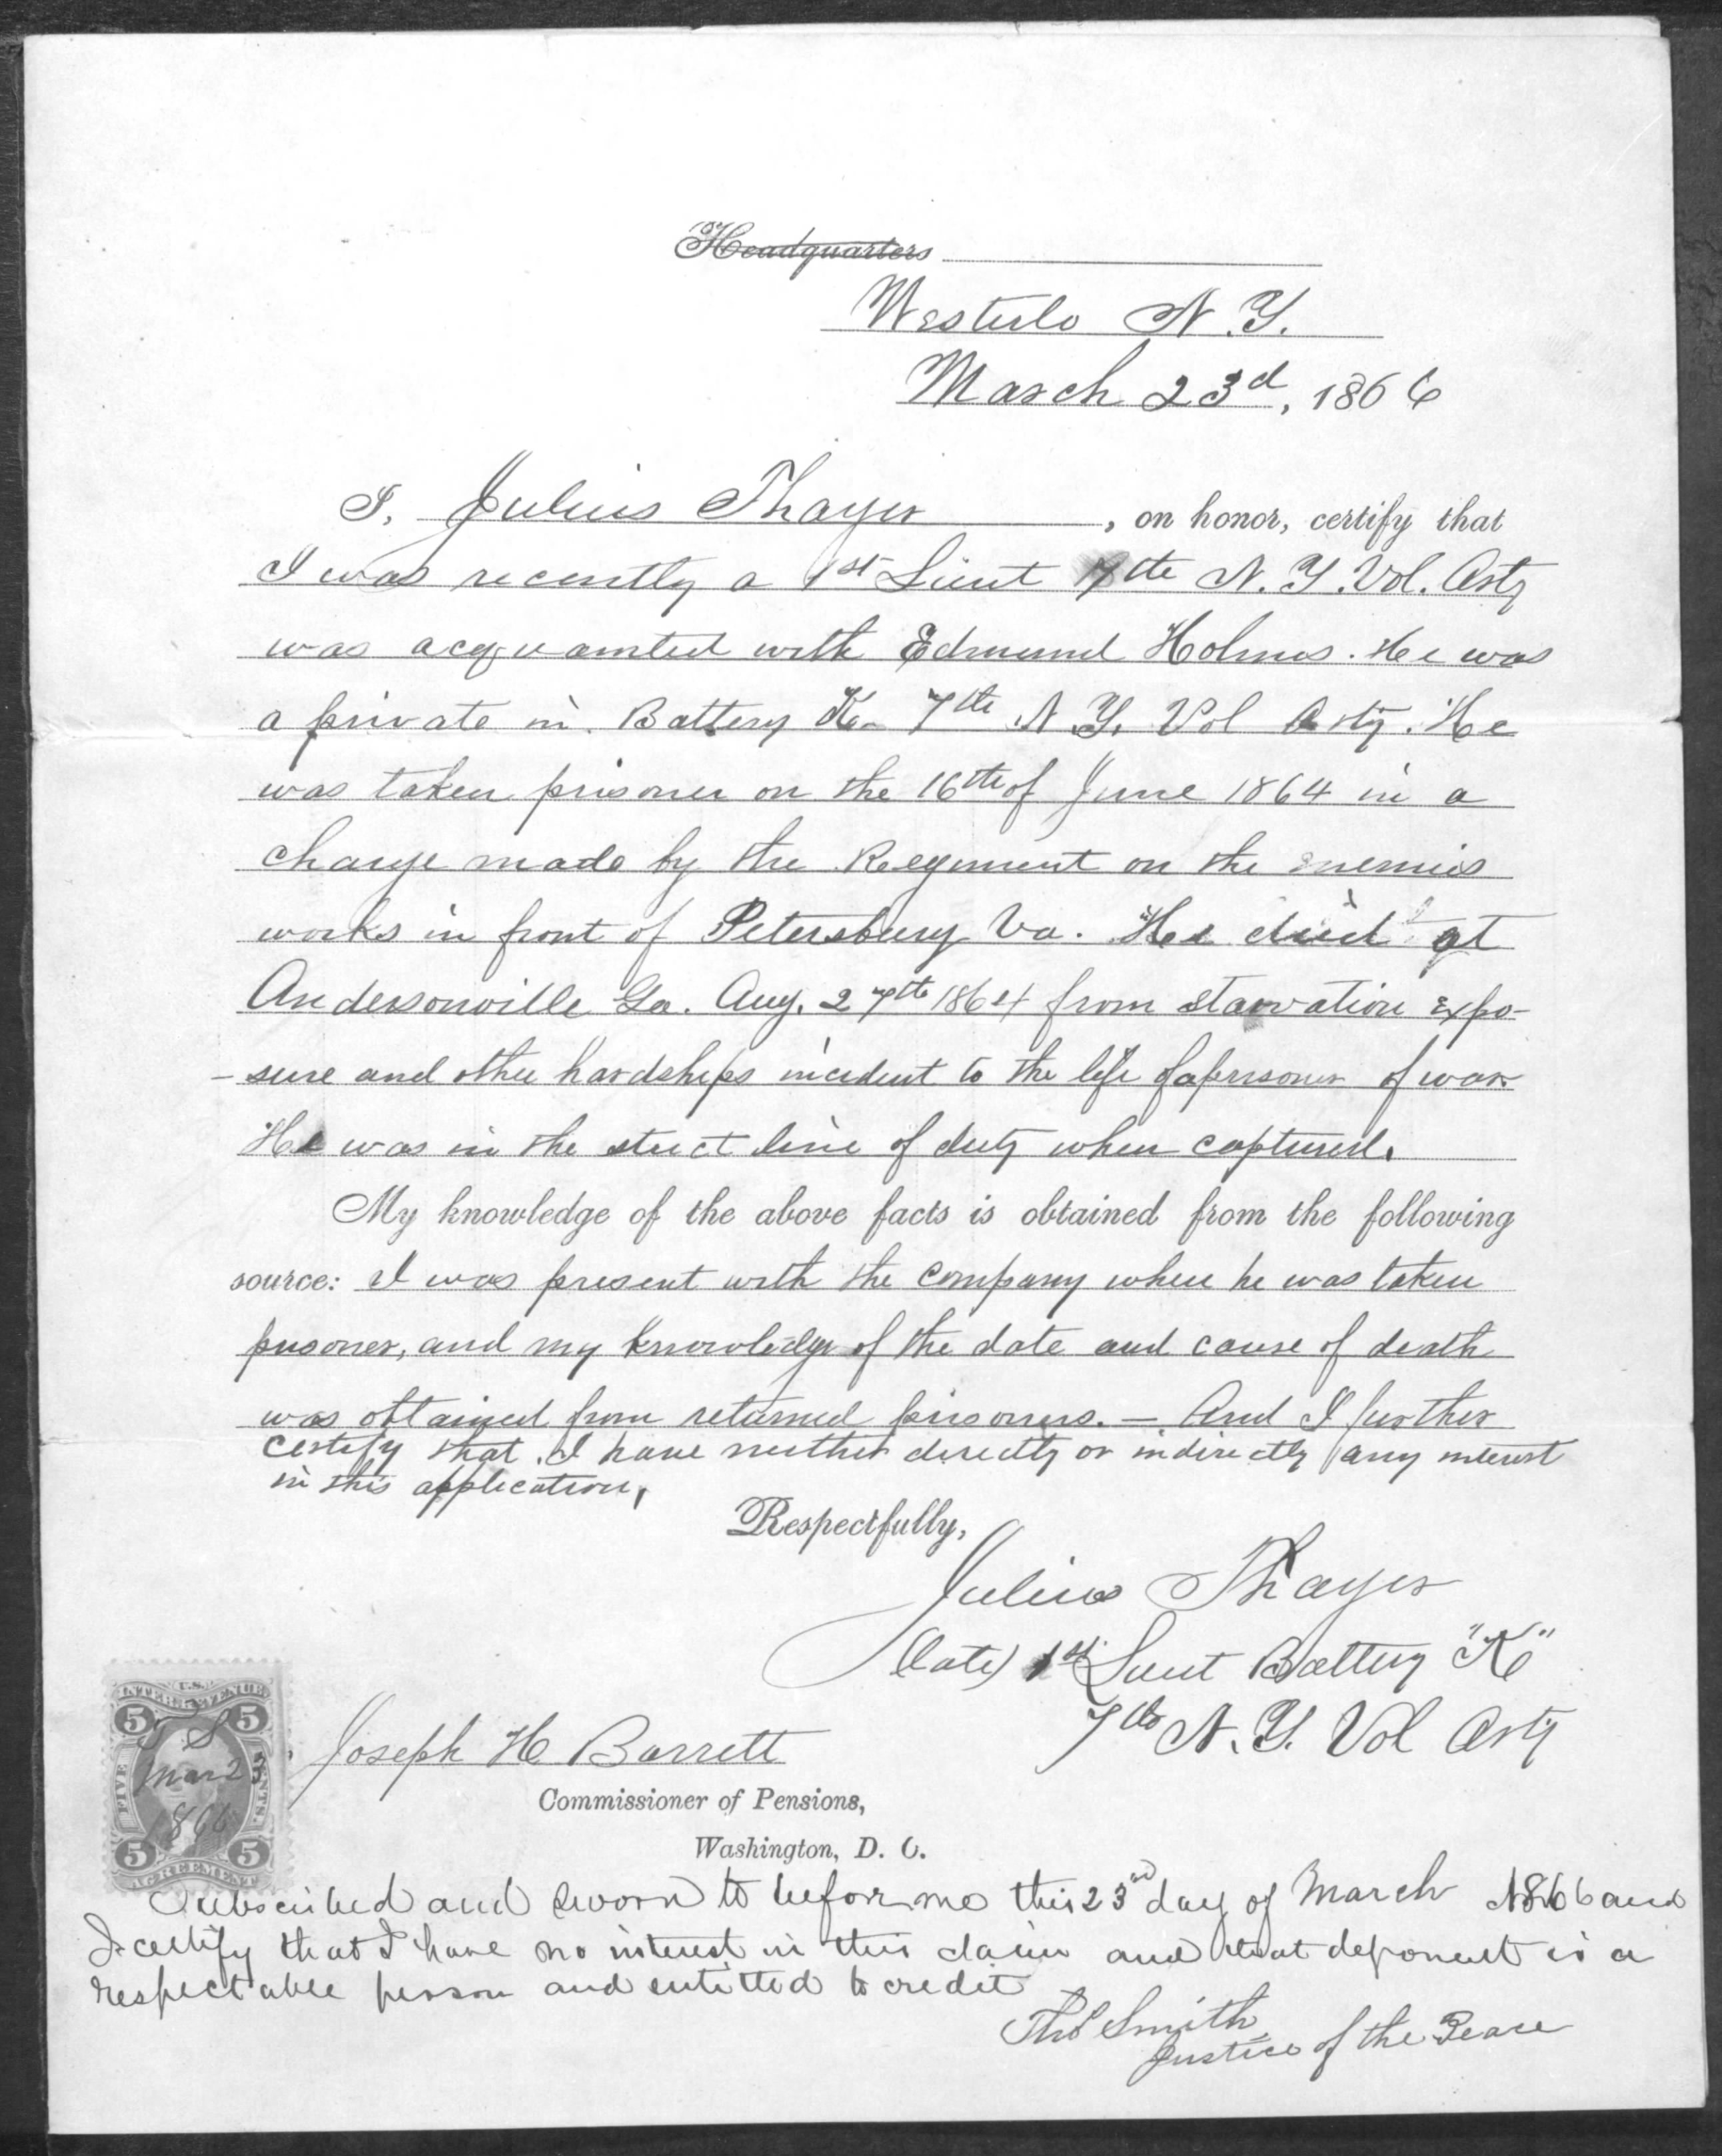 Headquarters
Westerlo N.Y.
March 23d, 1866
I, Julius Thayer, on honor, certify that
I was recently a 1st Lieut 7th N.Y. Vol. Arty
was acquainted with Edmund Holmes. He was
a private in Battery K- 7th N.Y. Vol Arty. He
was taken prisoner on the 16th of June 1864 in a
charge made by the Regement on the enemies
works in front of Petersburg Va. He died at
Andersonville Ga. Aug. 27th 1864 from starvation expo-
-sure and other hardships incident to the life of a prisoner of war
He was in the strict line of duty when captured.
My knowledge of the above facts is obtained from the following
source: I was present with the company when he was taken
prisoner, and my knowledge of the date and cause of death
was obtained from returned prisoners. — And I further
certify that I have neither directly or indirectly any interest
in this application,
Respectfully,
Julius Thayer
(late) 1st Lieut Battery "K"
7th N.Y. Vol Arty
U.S.
INTER. REVENUE
5 5
T S
FIVE CENTS.
Mar 23
1866
5 5
AGREEMENT
Joseph H. Barrett
Commissioner of Pensions,
Washington, D. C.
Subscribed and sworn to before me this 23rd day of March 1866 and
I certify that I have no interest in this claim and that deponent is a
respectable person and entitled to credit
Thos Smith
Justice of the Peace